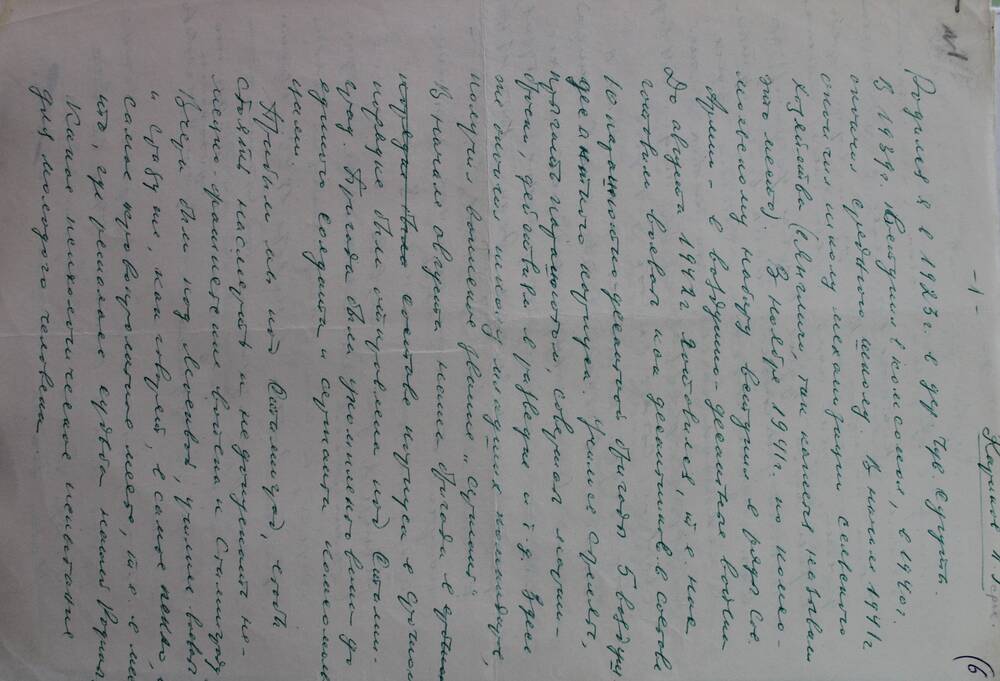 Каринов П. Герас.
(6
-1-
Родился я в 1923 г. в дер. Чув. Сугуты.
В 1939 г. вступил в комсомол, в 1940 г.
окончил среднюю школу. В начале 1941 г
окончил школу механизации сельского
хозяйства (в Янгличи, так кажется называли
это место). В ноябре 1941 г. по комсо-
мольскому набору вступил в ряды Сов.
Армии - в воздушно-десантные войска
До августа 1942 г готовился, т. е. нас
готовили воевать как десантников в составе
10 парашютно-десантной бригады 5 воздуш
десантного корпуса. Учились стрелять,
прыгать парашютом, совершать марш-
броски, действиям в разведке и т. д. Здесь
же окончил школу младших командиров,
получил воинское звание „сержант"
В начале августа наша бригада в срочном
порядке была составе корпуса в срочном
порядке была отправлена под Сталин-
град. Бригада была укомплектована до
единого солдата и сержанта комсомоль
цами.
Прибыли мы под Сталинград, чтобы
стоять насмерть и не допускать не-
мецко-фашистские войска к Сталинграду
Вчера были под Москвой, учились воевать
и сразу же, как говорят, в самое пекло,
самое кровопролитное место, т. е. в мес
то, где решалась судьба нашей Родины.
Какое психологическое испытание
для молодого человека